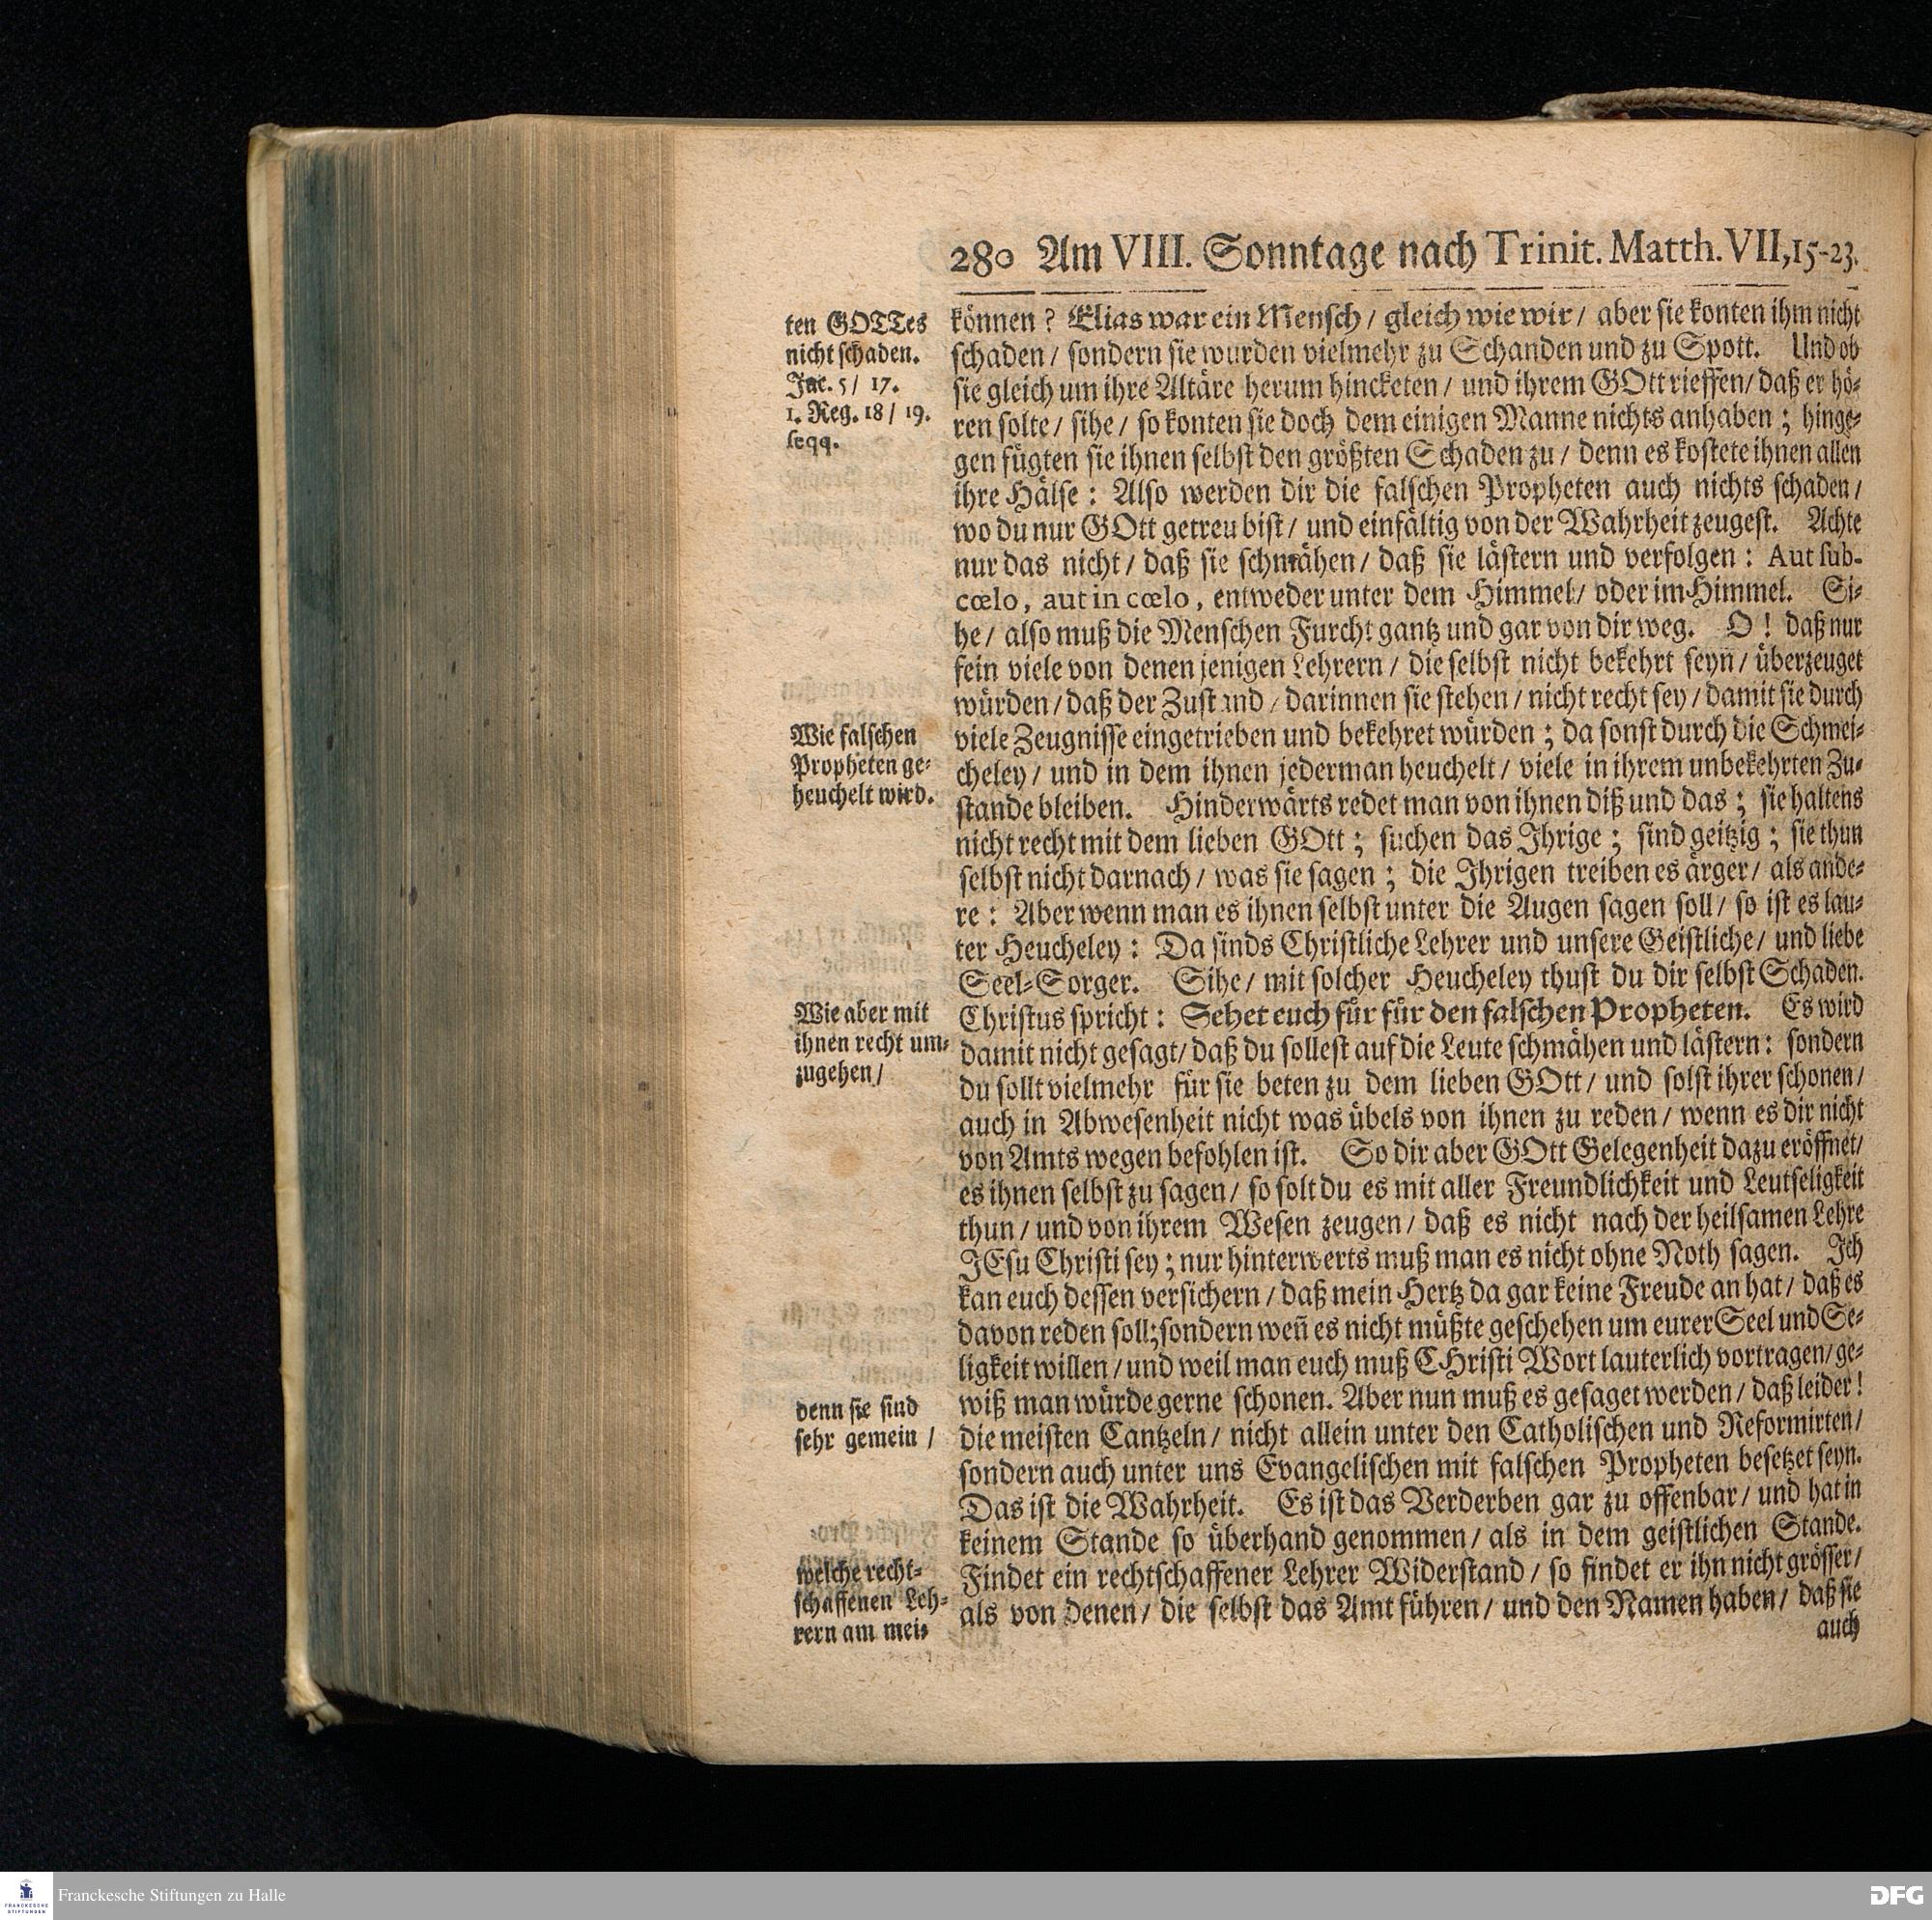 280 Am VIII. Sonntage nach Trinit. Matth. VII, 15-23.
ten GOTTes
nicht schaden.
Jac. 5 / 17.
1. Reg. 18 / 19.
seqq.
können? Elias war ein Mensch / gleich wie wir / aber sie konten ihm nicht
schaden / sondern sie wurden vielmehr zu Schanden und zu Spott. Und ob
sie gleich um ihre Altäre herum hincketen / und ihrem GOtt rieffen / daß er hö-
ren solte / sihe / so konten sie doch dem einigen Manne nichts anhaben ; hinge-
gen fügten sie ihnen selbst den größten Schaden zu / denn es kostete ihnen allen
ihre Hälse : Also werden dir die falschen Propheten auch nichts schaden /
wo du nur GOtt getreu bist / und einfältig von der Wahrheit zeugest. Achte
nur das nicht / daß sie schmähen / daß sie lästern und verfolgen : Aut sub-
cœlo, aut in cœlo, entweder unter dem Himmel / oder im Himmel. Si-
he / also muß die Menschen Furcht gantz und gar von dir weg. O ! daß nur
fein viele von denen jenigen Lehrern / die selbst nicht bekehrt seyn / überzeuget
würden / daß der Zustand / darinnen sie stehen / nicht recht sey / damit sie durch
Wie falschen
Propheten ge-
heuchelt wird.
viele Zeugnisse eingetrieben und bekehret würden ; da sonst durch die Schmei-
cheley / und in dem ihnen jederman heuchelt / viele in ihrem unbekehrten Zu-
stande bleiben. Hinderwärts redet man von ihnen diß und das ; sie haltens
nicht recht mit dem lieben GOtt ; suchen das Ihrige ; sind geitzig ; sie thun
selbst nicht darnach / was sie sagen ; die Ihrigen treiben es ärger / als ande-
re : Aber wenn man es ihnen selbst unter die Augen sagen soll / so ist es lau-
ter Heucheley : Da sinds Christliche Lehrer und unsere Geistliche / und liebe
Seel-Sorger. Sihe / mit solcher Heucheley thust du dir selbst Schaden.
Wie aber mit
ihnen recht um-
zugehen /
Christus spricht : Sehet euch für für den falschen Propheten. Es wird
damit nicht gesagt / daß du sollest auf die Leute schmähen und lästern : sondern
du sollt vielmehr für sie beten zu dem lieben GOtt / und solst ihrer schonen /
auch in Abwesenheit nicht was übels von ihnen zu reden / wenn es dir nicht
von Amts wegen befohlen ist. So dir aber GOtt Gelegenheit dazu eröffnet /
es ihnen selbst zu sagen / so solt du es mit aller Freundlichkeit und Leutseligkeit
thun / und von ihrem Wesen zeugen / daß es nicht nach der heilsamen Lehre
JEsu Christi sey ; nur hinterwerts muß man es nicht ohne Noth sagen. Ich
kan euch dessen versichern / daß mein Hertz da gar keine Freude an hat / daß es
davon reden soll; sondern weñ es nicht müßte geschehen um eurer Seel und Se-
ligkeit willen / und weil man euch muß CHristi Wort lauterlich vortragen / ge-
wiß man würde gerne schonen. Aber nun muß es gesaget werden / daß leider !
denn sie sind
sehr gemein /
die meisten Cantzeln / nicht allein unter den Catholischen und Reformirten /
sondern auch unter uns Evangelischen mit falschen Propheten besetzet seyn.
Das ist die Wahrheit. Es ist das Verderben gar zu offenbar / und hat in
keinem Stande so überhand genommen / als in dem geistlichen Stande.
welche recht-
schaffenen Leh-
rern am mei-
Findet ein rechtschaffener Lehrer Widerstand / so findet er ihn nicht grösser /
als von denen / die selbst das Amt führen / und den Namen haben / daß sie
auch
FRANCKESCHE
STIFTUNGEN
Franckesche Stiftungen zu Halle
DFG